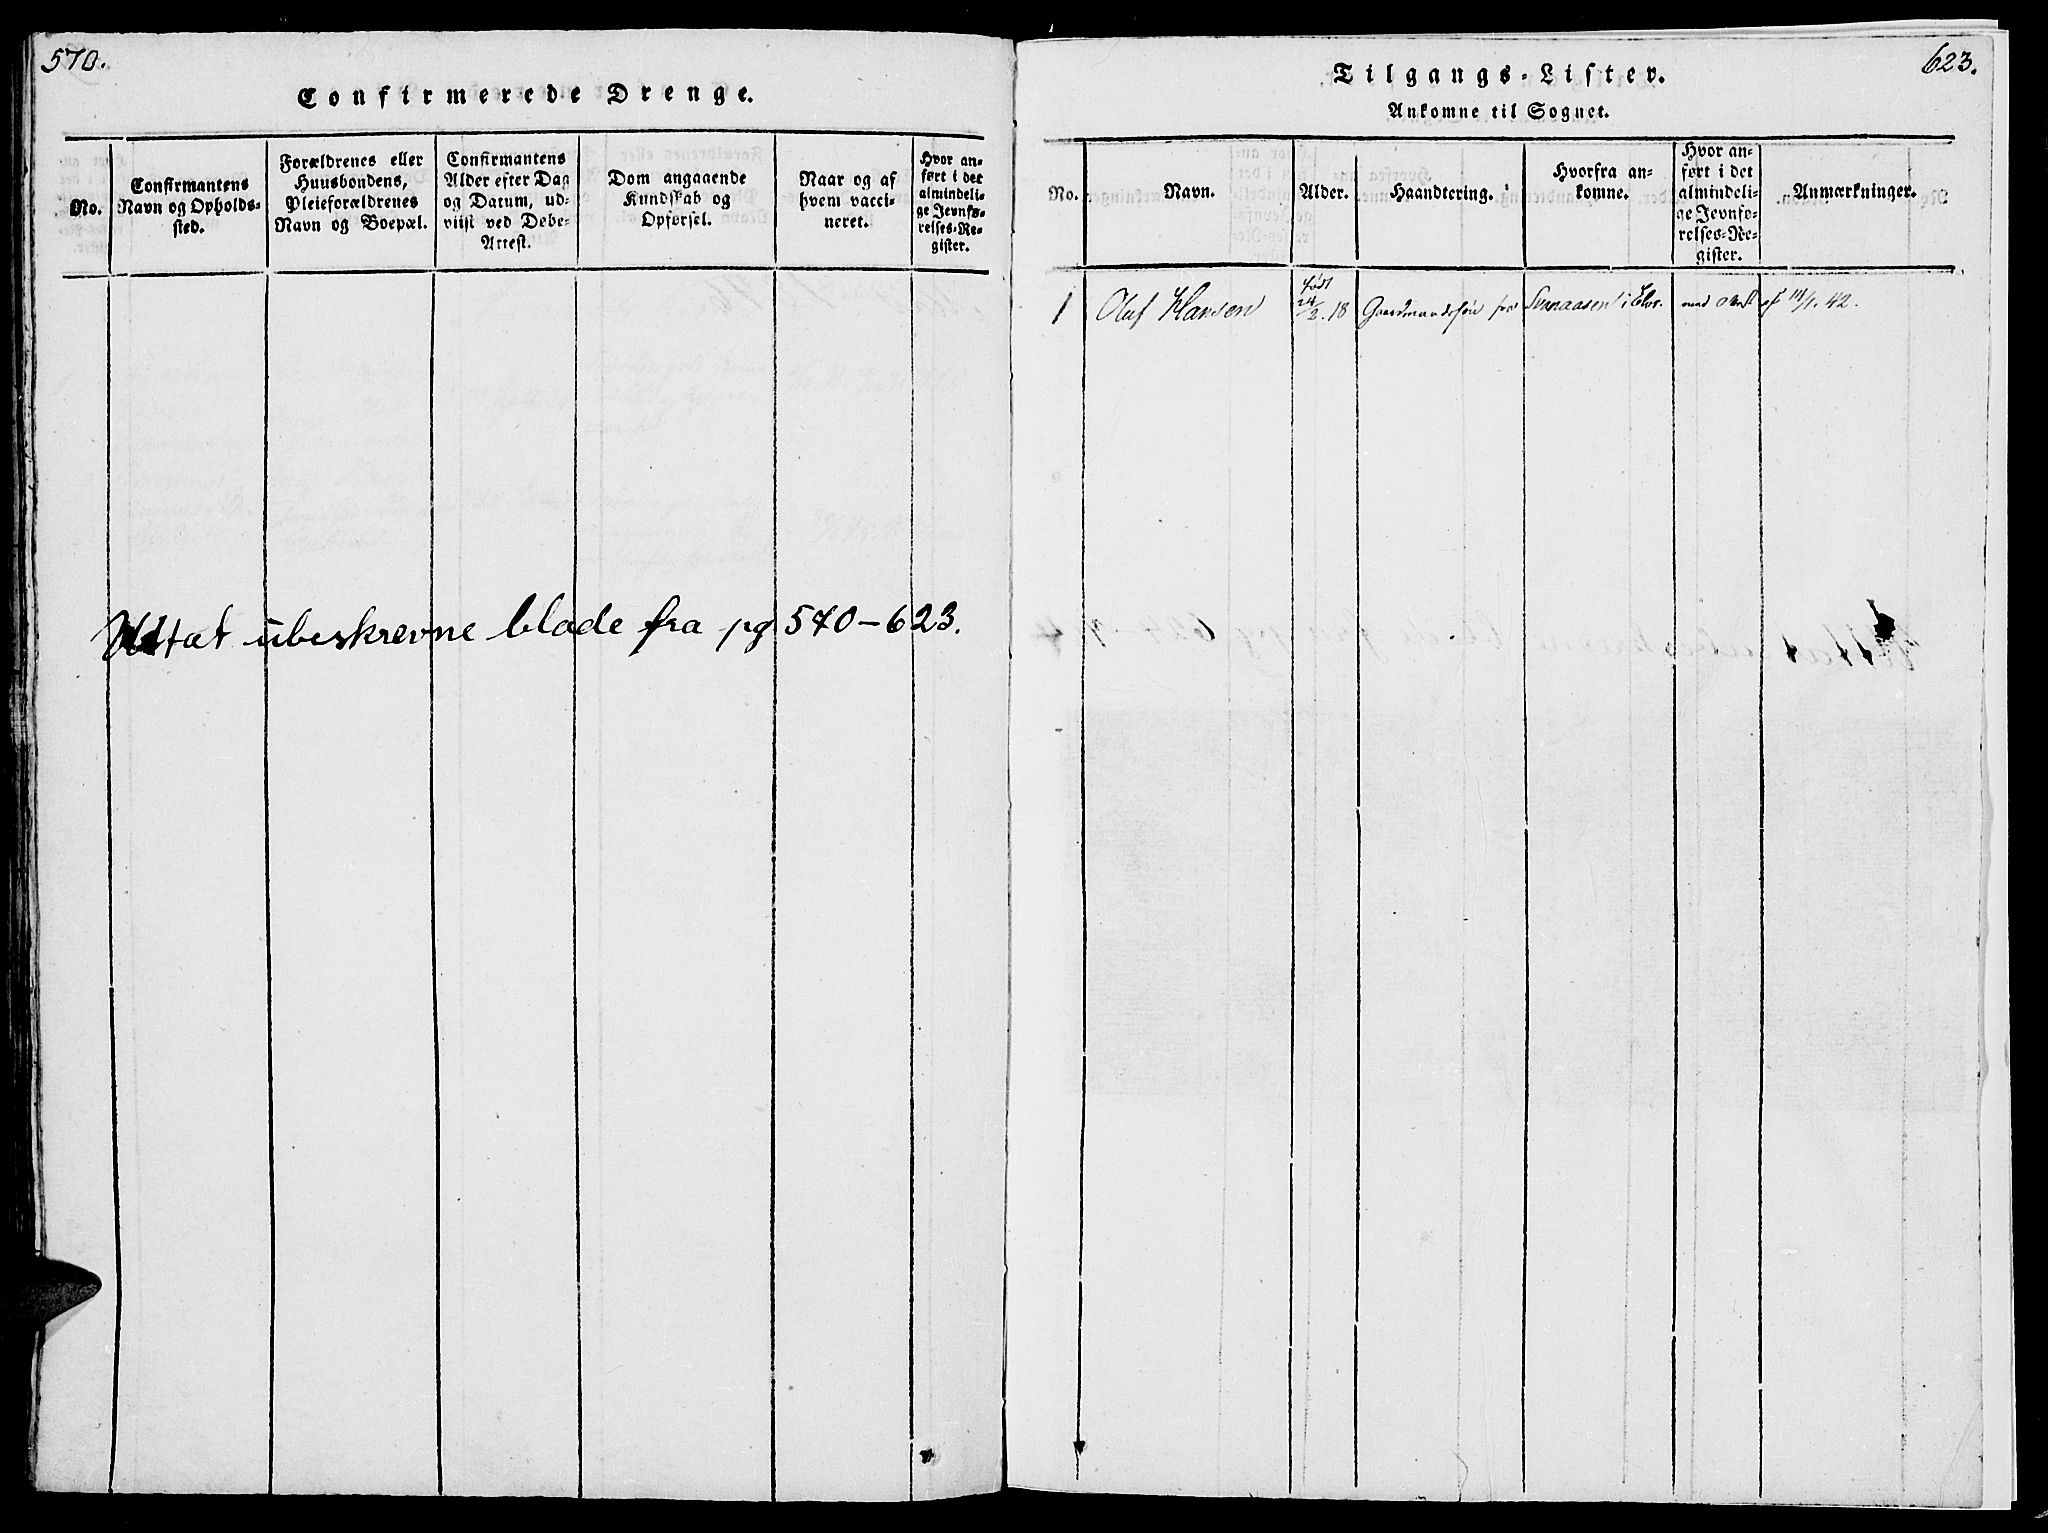 570.
Confirmerede Drenge.
No.
Confirmantens
Navn og Opholds-
sted.
Forældrenes eller
Huusbondens,
Pleieforældrenes
Navn og Boepæl.
Confirmantens
Alder efter Dag
og Datum, ud-
viist ved Døbe-
Attest.
Dom angaaende
Kundskab og
Opførsel.
Naar og af
hvem vacci-
neret.
Hvor an-
ført i det
almindeli-
ge Jevnfø-
relses-Re-
gister.
Uttat ubeskrevne blade fra pg 570-623.
623.
Tilgangs-Lister.
Ankomne til Sognet.
No.
Navn.
Alder.
Haandtering.
Hvorfra an-
komne.
Hvor an-
ført i det
almindeli-
ge Jevnfø-
relses-Re-
gister.
Anmærkninger.
født
1 Oluf Hansen 24/2.18 Gaardmandssøn fra i med af 14/1.42.